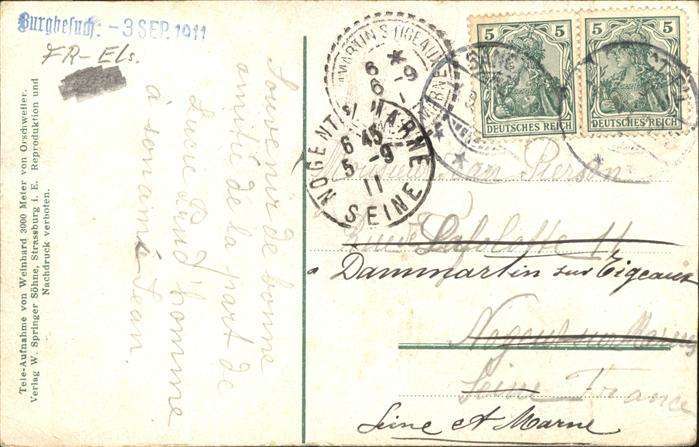 Burgbesuch: -3 SEP. 1911
FR-Els.
Tele-Aufnahme von Weinhard 3000 Meter von Orschweiler.
Verlag W. Springer Söhne, Strassburg i. E. Reproduktion und
Nachdruck verboten.
Souvenir de bonne
amitié de la part de
Lucie Prud'homme
à son ami Jean
MARTIN S/TIGEAUX
6 - 9
NOGENT S/ MARNE
6 45
5 - 9
11
SEINE
5 5
DEUTSCHES REICH
5 5
DEUTSCHES REICH
Jean Pierson
11
Dammartin sur Tigeaux
Nogent sur Marne
Seine France
Seine et Marne